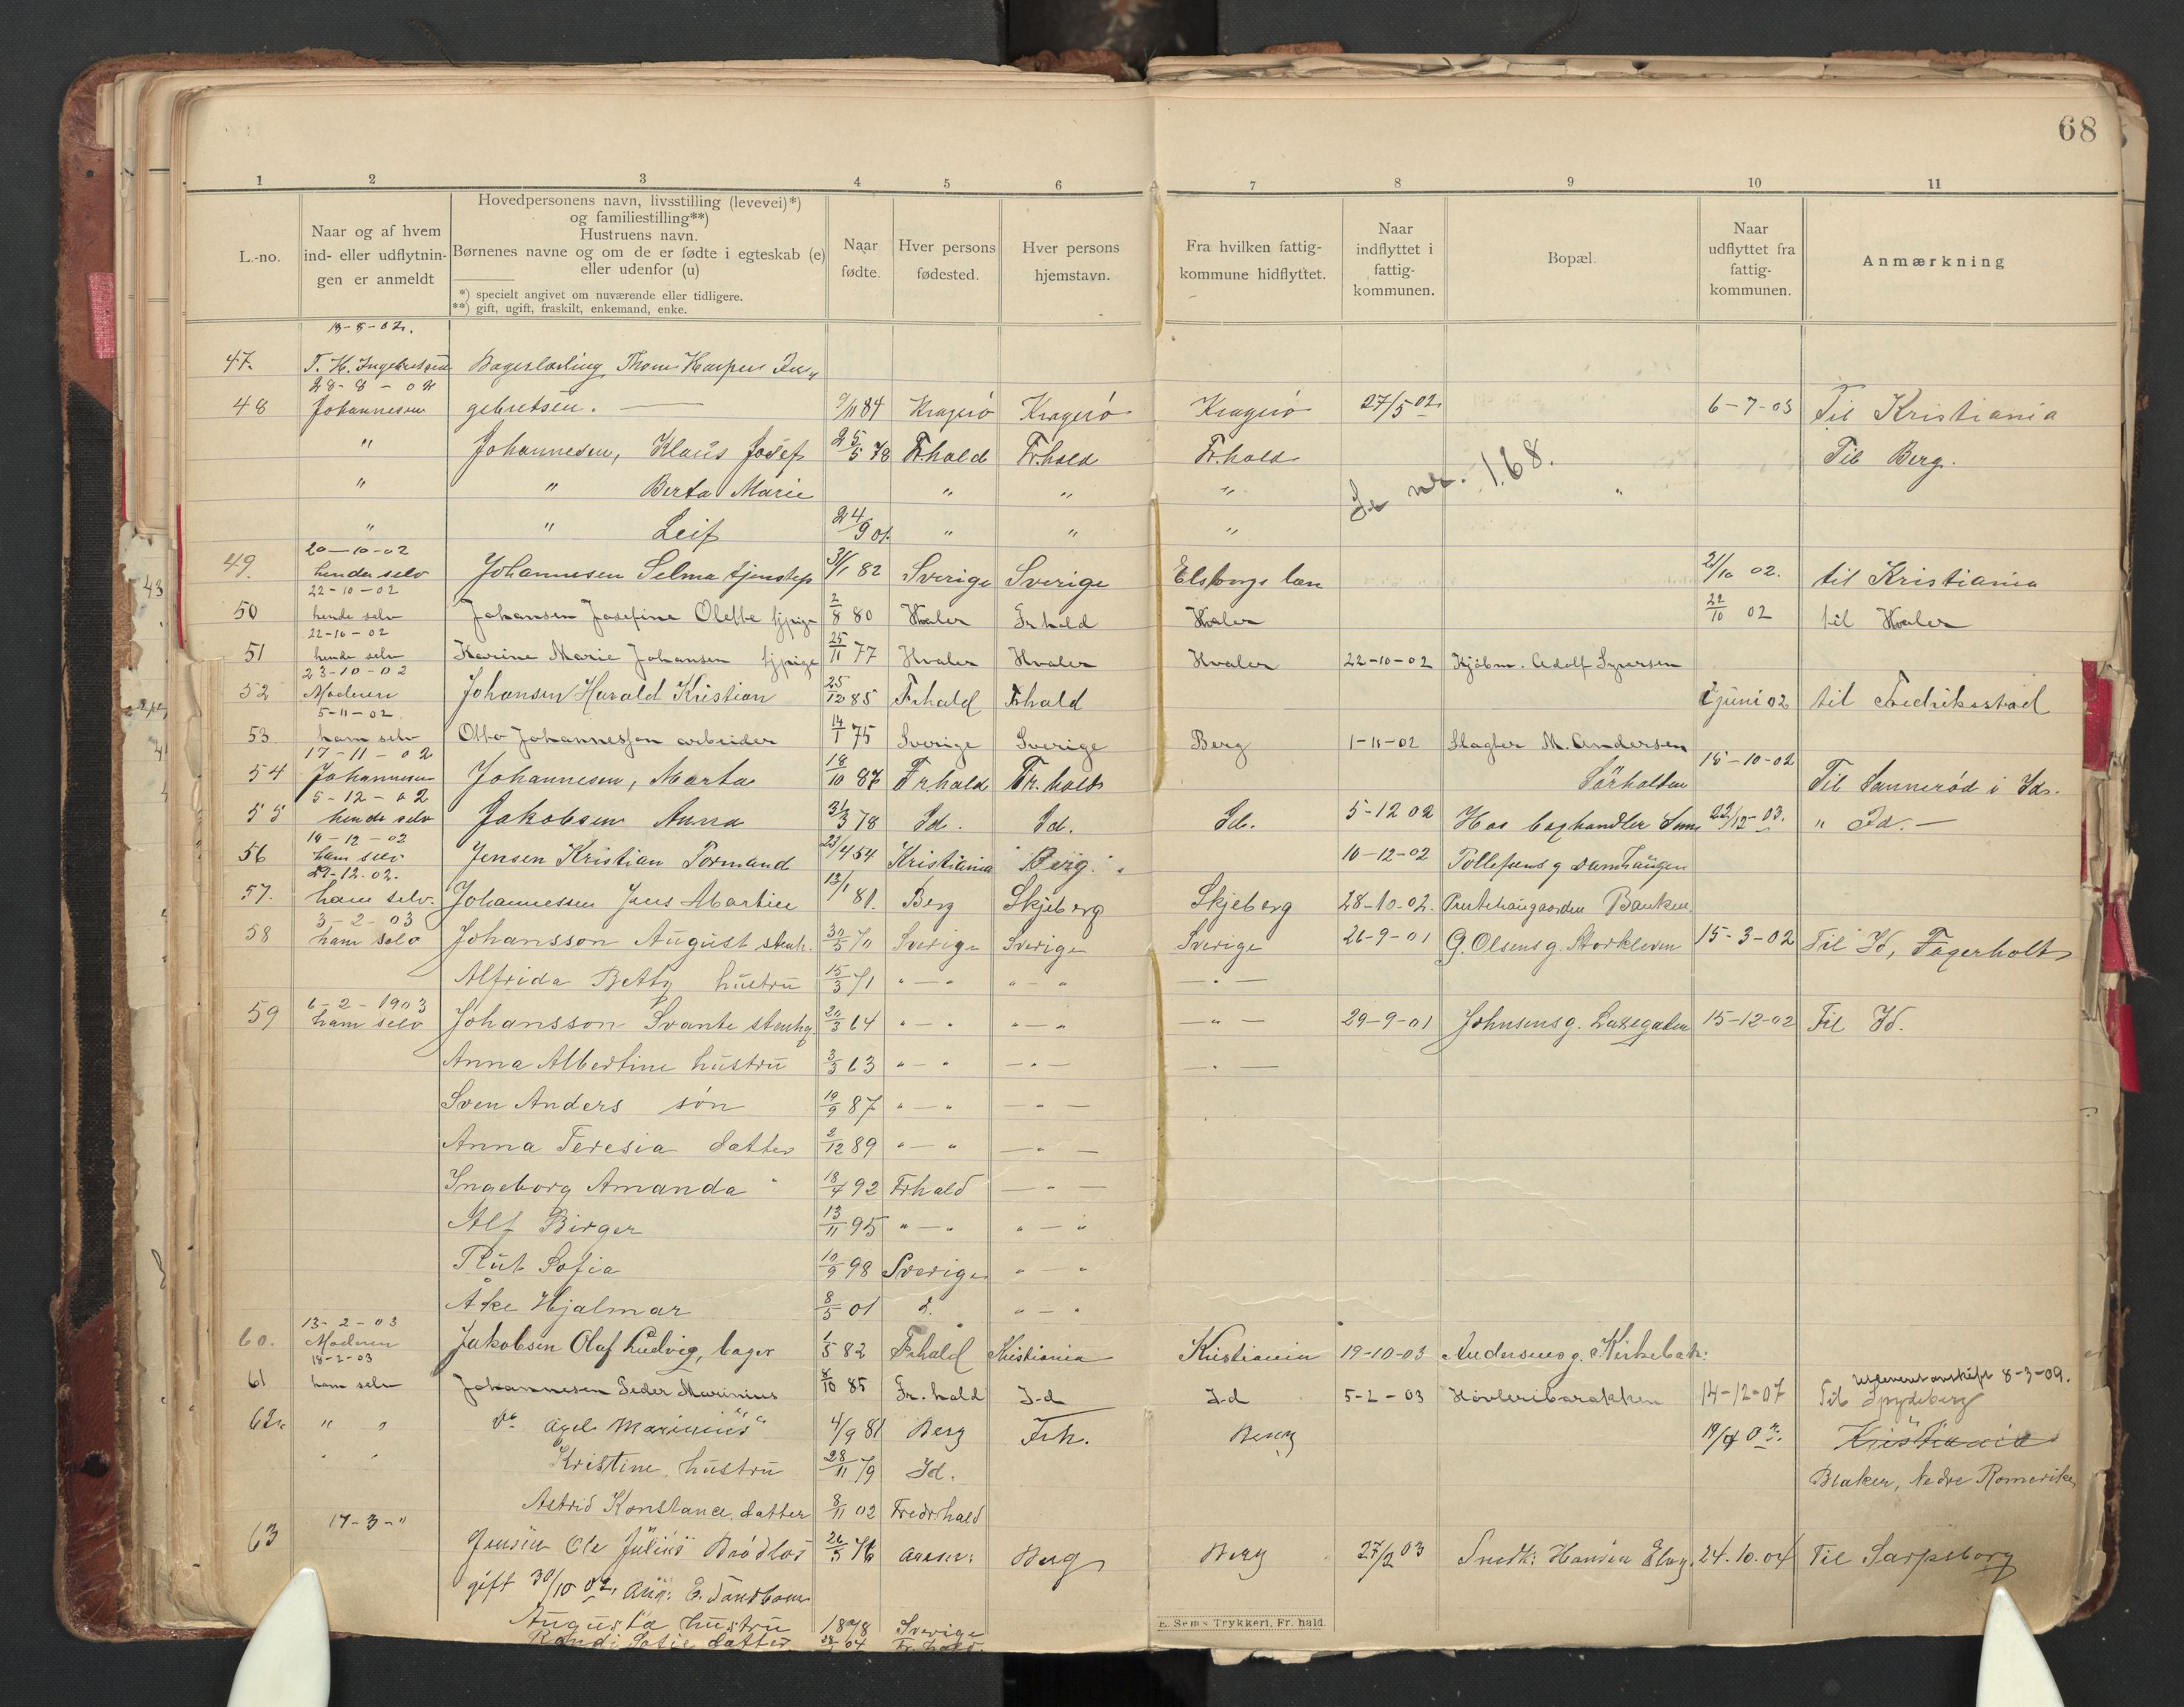 68
1 2 3 4 5 6 7 8 9 10 11
L.-no.
Naar og af hvem
ind- eller udflytnin-
gen er anmeldt
Hovedpersonens navn, livsstilling (levevei)*)
og familiestilling**)
Hustruens navn.
Børnenes navne og om de er fødte i egteskab (e)
eller udenfor (u)
*) specielt angivet om nuværende eller tidligere.
**) gift, ugift, fraskilt, enkemand, enke.
Naar
fødte.
Hver persons
fødested.
Hver persons
hjemstavn.
Fra hvilken fattig-
kommune hidflyttet.
Naar
indflyttet i
fattig-
kommunen.
Bopæl.
Naar
udflyttet fra
fattig-
kommunen.
Anmærkning
18-8-02.
47. T. H. Ingebretsen Bagerlærling Thom Kasper In-
28-8-02
48 Johannesen gebretsen. — 9/11 84 Kragerø Kragerø Kragerø 27/5 02 6-7-03 Til Kristiania
" Johannesen, Klaus Josef 25/5 78 Fr.hald Fr.hald Fr.hald Se nr. 168. Til Berg.
" " Berta Marie " " "
" " Leif 24/9 01 " " "
20-10-02
49. hender selv Johannesen Selma tjenstep 31/1 82 Sverige Sverige Elsborgs län 21/10 02. til Kristiania
22-10-02
50 hende selv Johansen Josefine Olette tjpige 2/8 80 Hvaler Fr hald Hvaler 22/10 02 til Hvaler
22-10-02
51 hende selv Karine Marie Johansen tjpige 25/11 77 Hvaler Hvaler Hvaler 22-10-02 Kjøbm. Adolf Syversen
23-10-02
52 Moderen Johansen Harald Kristian 25/12 85 Frhald Frhald juni 02 til Fredriksstad
5-11-02
53 ham selv Otto Johannessen arbeider 14/1 75 Sverige Sverige Berg 1-11-02 Slagter M. Andersen
17-11-02
54 Johannesen Johannesen, Marta 18/10 87 Frhald Fr.hald Sørhalden 15-10-02 Til Sannerød i Id.
5-12-02
55 hende selv Jakobsen Anna 31/3 78 Id. Id. Id. 5-12 02 Hos boghandler Sems 22/12-03. " Id.—
10-12-02
56 ham selv Jensen Kristian Formand 23/4 54 Kristiania Berg. 10-12-02 Tollefsens g Damhaugen
29-12.02.
57. ham selv. Johannessen Jens Martin 13/1 81. Berg Skjeberg Skjeberg 28-10-02. Banken.
3-2-03
58 ham selv Johansson August stenh. 30/5 70 Sverige Sverige Sverige 26-9-01 G. Olsens g. Storkleven 15-3-02 Til Id, Fagerholt
Alfrida Betty hustru 15/3 71 " — " " — " — " —
6-2-1903
59 ham selv Johansson Svante stenhg 20/3 64 " — " " — " — " — 29-9-01 Johnsens g. Lassegaden 15-12-02 Til Id.
Anna Albertine hustru 3/3 63 " — " — " — — " —
Sven Anders søn 19/9 87 " — " — " —
Anna Teresia datter 2/12 89 " — " — " —
Ingeborg Amanda " 18/4 92 Frhald — " —
Alf Birger 13/11 95 " — " " — "
Rut Sofia 10/9 98 Sverige " — "
Åke Hjalmar 8/5 01 " — "
13-2-03
60. Moderen Jakobsen Olaf Ludvig, bager 1/5 82 Frhald Kristiania Kristiania 19-10-03 Andersens g. Kirkebak.
18-2-03
61 ham selv Johannesen Peder Marinius 8/10 85 Fr. hald Id Id 5-2-03 Høvleribarakken 14-12-07 Til Spydeberg
Udleveret avskrift 8-3-09.
62. " " Do Axel Marinius 4/9 81 Berg Frh. Berg Kristiania
" " Kristine hustru 28/11 79 Id. Blaker, Nedre Romerike
Astrid Konstance, datter 8/11 02 Fredr.hald
17-3-"
63 Jensen Ole Julius 26/5 76 Berg Berg 27/2 03 Snedk: Hansen 24.10.04 Til Sarpsborg
gift 30/10 02, Aug: E. Sandbom
Augusta hustru 1878 Sverige
Randi Sofie datter 04 Fr.hald.
E. Sems Trykkeri, Fr. hald.